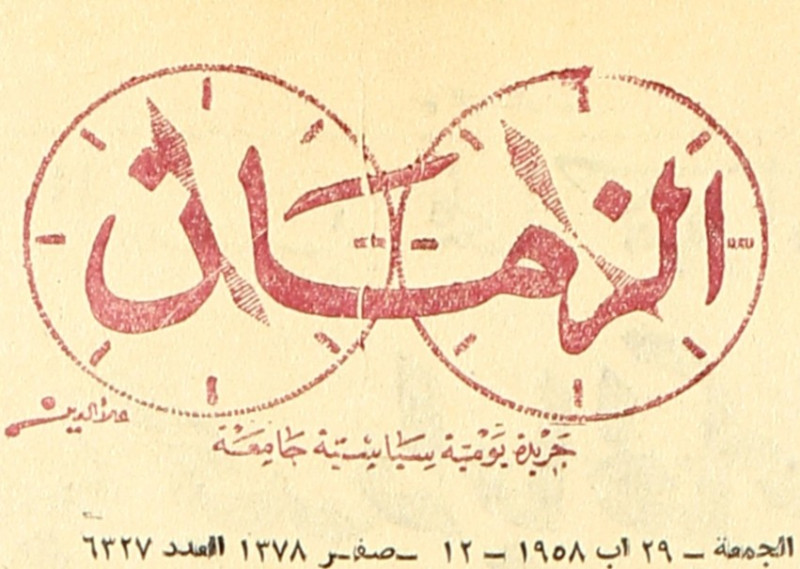 الزمان
علاء الدين
جريدة يومية سياسية جامعة
الجمعة – ٢٩ اب ١٩٥٨ – ١٢ – صفر ١٣٧٨ العدد ٦٣٢٧